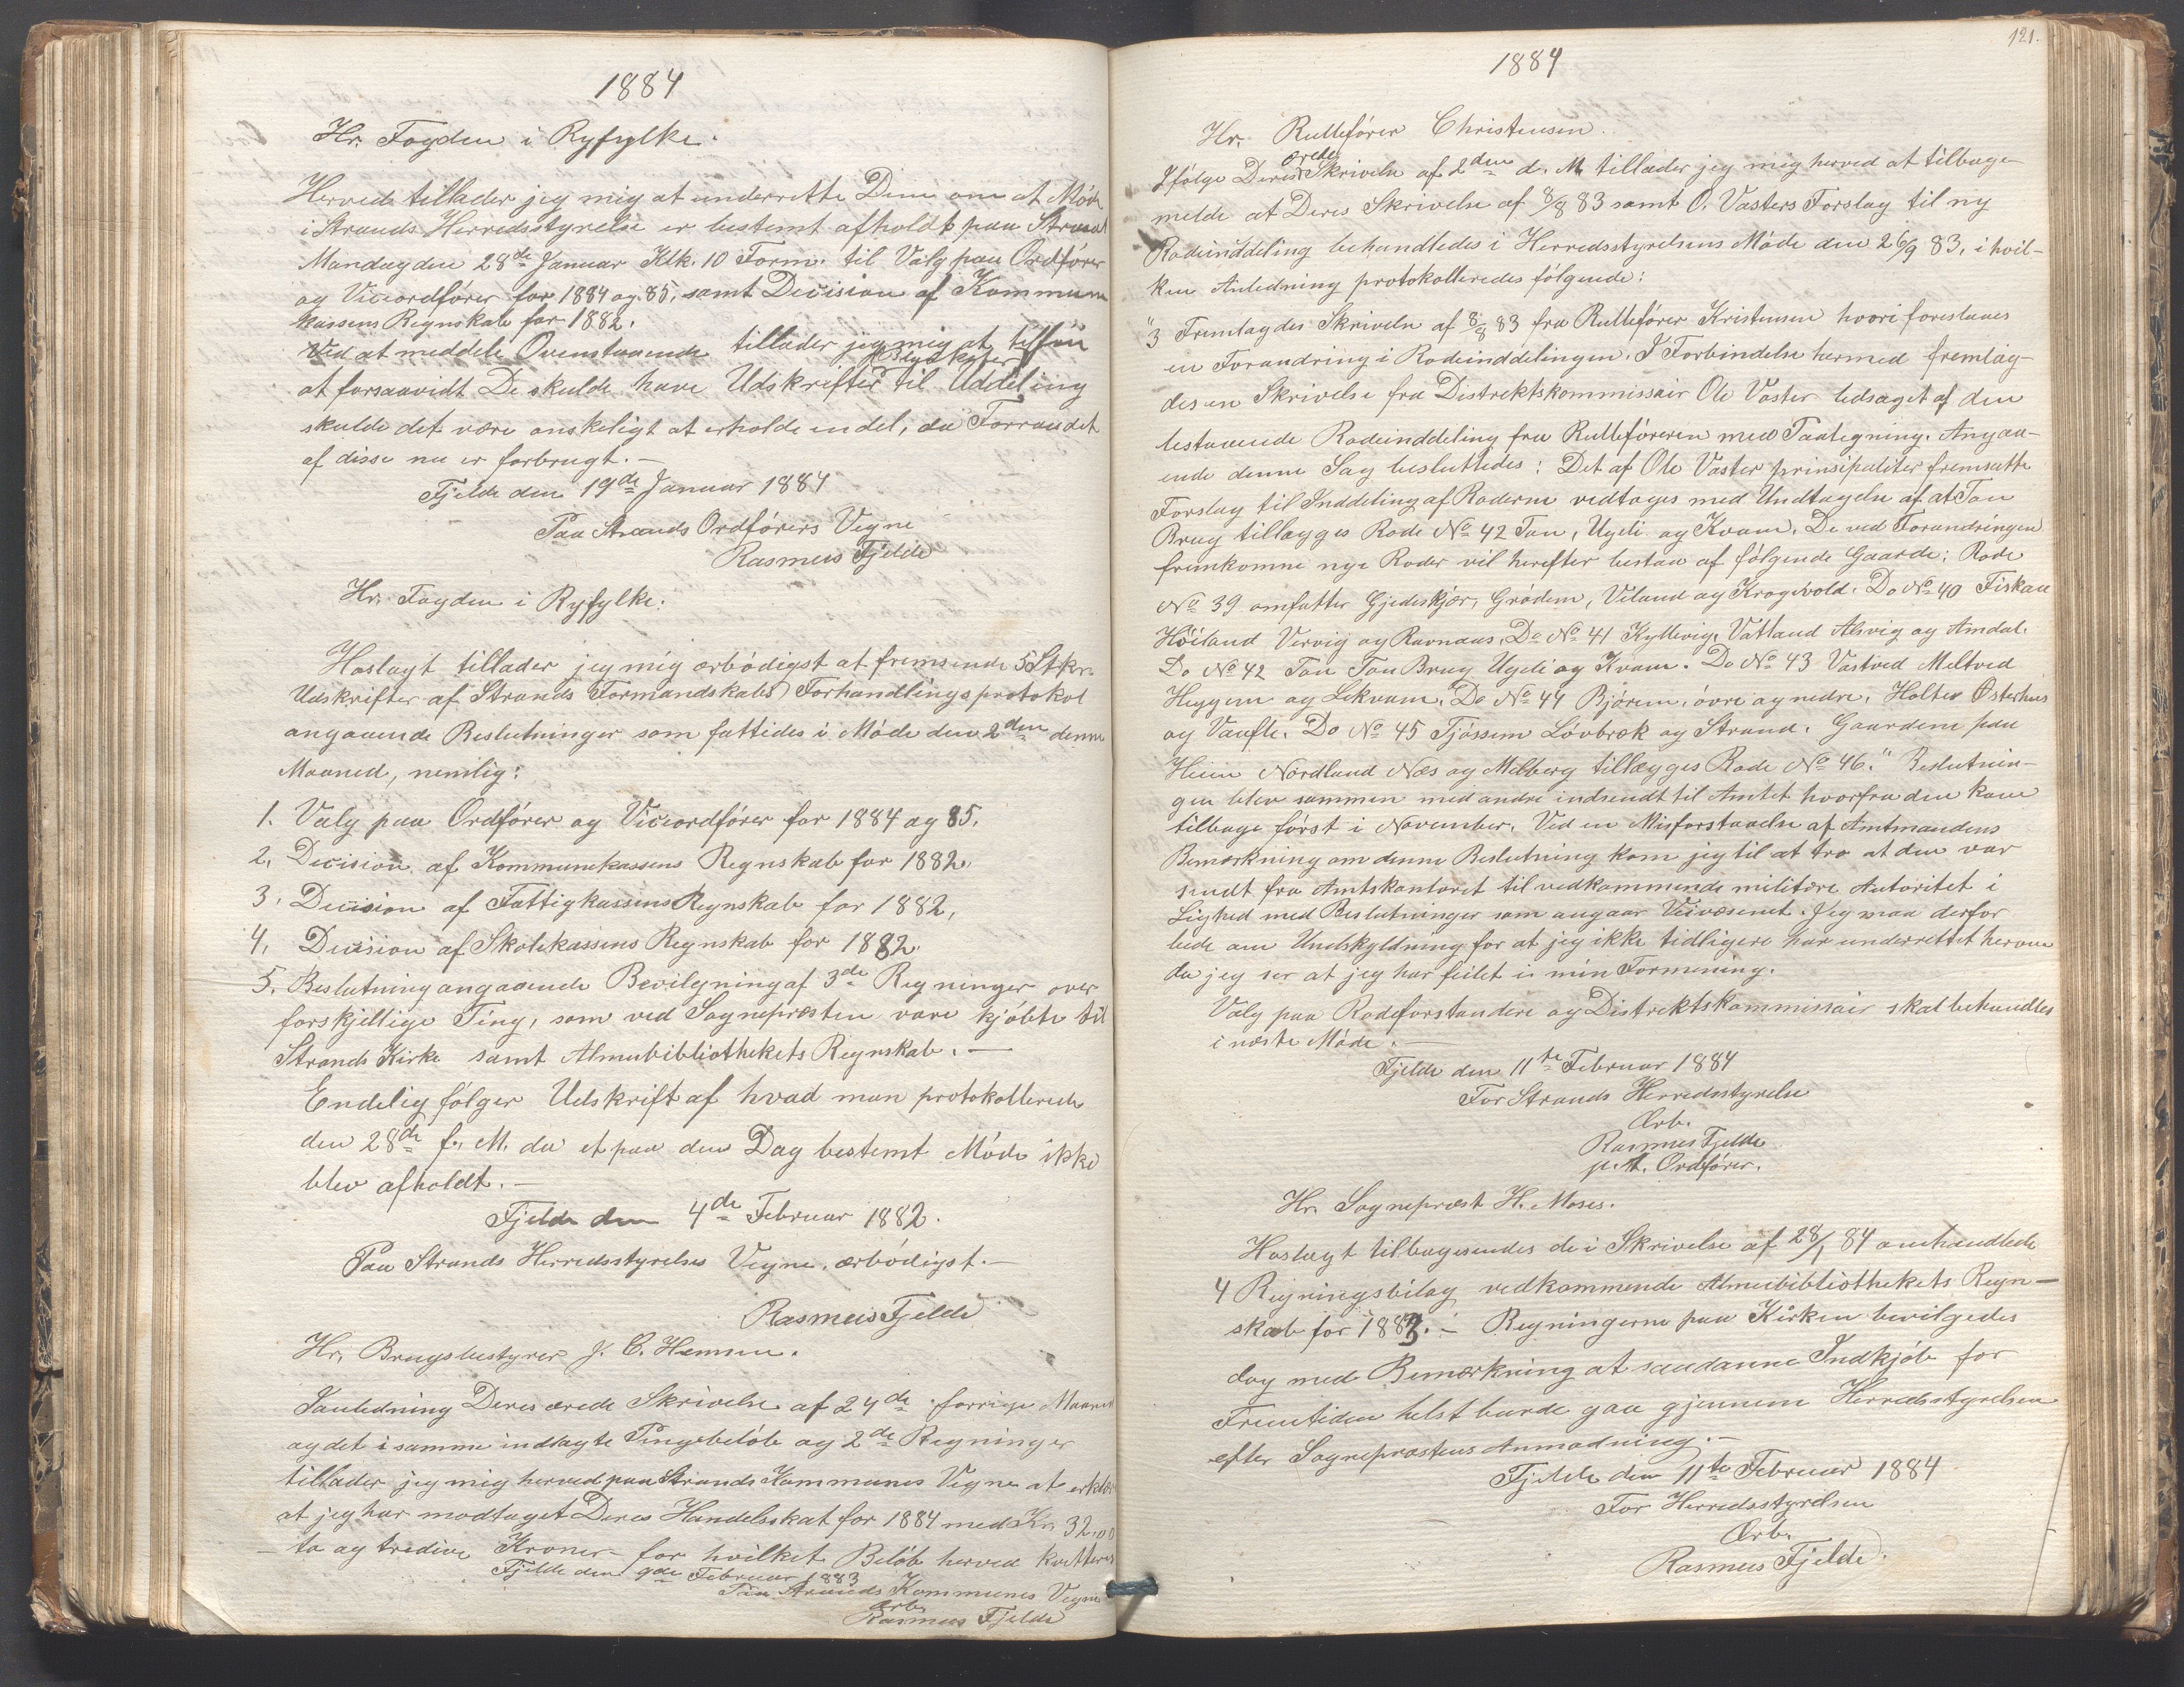 1884
Hr. Fogden i Ryfylke.
Herved tillader jeg mig at underrette Dem om at Møde
i Strands Herredsstyrelse er bestemt afholdt paa Strand
Mandag den 28de Januar Klk. 10 Form. til Valg paa Ordfører
og Viceordfører for 1884 og 85, samt Decision af Kommune
kassens Regnskab for 1882.
Ved at meddele Ovenstaaende tillader jeg mig at tilføie
at forsaavidt De skulde have Udskrifter til Uddeling
skulde det være ønskeligt at erholde en del, da Forraadet
af disse nu er forbrugt.—
Fjelde den 19de Januar 1884
Paa Strands Ordførers Vegne
Rasmus Fjelde
Hr. Fogden i Ryfylke:
Hoslagt tillader jeg mig ærbødigst at fremsende 5 Stkr.
Udskrifter af Strands Formandskabs Forhandlingsprotokol
angaaende Beslutninger som fattedes i Møde den 2den denne
Maaned, nemlig:
1. Valg paa Ordfører og Viceordfører for 1884 og 85.
2. Decision af Kommunekassens Regnskab for 1882
3. Decision af Fattigkassens Regnskab for 1882,
4. Decision af Skolekassens Regnskab for 1882.
5. Beslutning angaaende Bevilgning af 3de Regninger over
forskjellige Ting, som ved Sognepræsten vare kjøbte til
Strands Kirke samt Almubibliothekets Regnskab.—
Endelig følger Udskrift af hvad man protokollerede
den 28de f. M. da et paa den Dag bestemt Møde ikke
blev afholdt.—
Fjelde den 4de Februar 1882.
Paa Strands Herredsstyrelses Vegne, ærbødigst.—
Rasmus Fjelde
Hr. Brugsbestyrer J. C. Hemsen.
I anledning Deres ærede Skrivelse af 24de forrige Maaned
og det i samme indlagte Pengebeløb og 2de Regninger
tillader jeg mig herved paa Strands Kommunes Vegne at erklære
at jeg har modtaget Deres Handelsskat for 1884 med Kr. 32,00
— to og tredive Kroner — for hvilket Beløb herved kvitteres
Fjelde den 9de Februar 1883
Paa Strands Kommunes Vegne
Ærb.
Rasmus Fjelde
121.
1884
Hr. Rullefører Christensen.
Ifølge Deres ærede Skrivelse af 2den d. M. tillader jeg mig herved at tilbage-
melde at Deres Skrivelse af 8/8 83 samt O. Vasters Forslag til ny
Rodeinddeling behandledes i Herredsstyrelsens Møde den 26/9 83, i hvil-
ken Anledning protokolleredes følgende:
"3 Fremlagdes Skrivelse af 8/8 83 fra Rullefører Kristensen hvori foreslaaes
en Forandring i Rodeinddelingen. I Forbindelse hermed fremlag-
des en Skrivelse fra Distriktskommissair Ole Vaster ledsaget af den
bestaaende Rodeinddeling fra Rulleføreren med Paategning. Angaa-
ende denne Sag besluttedes: Det af Ole Vaster prinsipaliter fremsatte
Forslag til Inddeling af Roderne vedtages med Undtagelse af at Tau
Brug tillægges Rode No 42 Tau, Ugeli og Kvam. De ved Forandringen
fremkomne nye Roder vil herefter bestaa af følgende Gaarde: Rode
No 39 omfatter Gjedeskjær, Grødem, Veland og Krogevold. Do No 40 Fiskaa
Höiland Vervig og Ravnaas. Do No 41 Kyllevig, Vatland Alsvig og Amdal.
Do No 42 Tau Tau Brug Ugeli og Kvam. Do No 43 Vastved Meltved
Heggem og Lekvam. Do No 44 Bjørem, øvre og nedre, Holter Østerhus
og Vaufle. Do No 45 Tjøssem Løvbræk og Strand. Gaardene paa
Heien Nordland Næs og Melberg tillægges Rode No 46." Beslutnin-
gen blev sammen med andre indsendt til Amtet hvorfra den kom
tilbage først i November. Ved en Misforstaaelse af Amtmandens
Bemærkning om denne Beslutning kom jeg til at tro at den var
sendt fra Amtskontoret til vedkommende militære Autoritet i
Lighed med Beslutninger som angaar Veivæsenet. Jeg maa derfor
bede om Undskyldning for at jeg ikke tidligere har underrettet herom
da jeg ser at jeg har feilet i min Formening.
Valg paa Rodeforstandere og Distriktskommissair skal behandles
i næste Møde.—
Fjelde den 11te Februar 1884
For Strands Herredsstyrelse
Ærb.
Rasmus Fjelde
p. t. Ordfører.
Hr. Sognepræst H. Moses.
Hoslagt tilbagesendes de i Skrivelse af 28/1 84 omhandlede
4 Regningsbilag vedkommende Almubibliothekets Regn-
skab for 1883.— Regningerne paa Kirken bevilgedes
dog med Bemærkning at saadanne Indkjøb for
Fremtiden helst burde gaa gjennem Herredsstyrelsen
efter Sognepræstens Anmodning.—
Fjelde den 11te Februar 1884
For Herredsstyrelsen
Ærb.
Rasmus Fjelde.